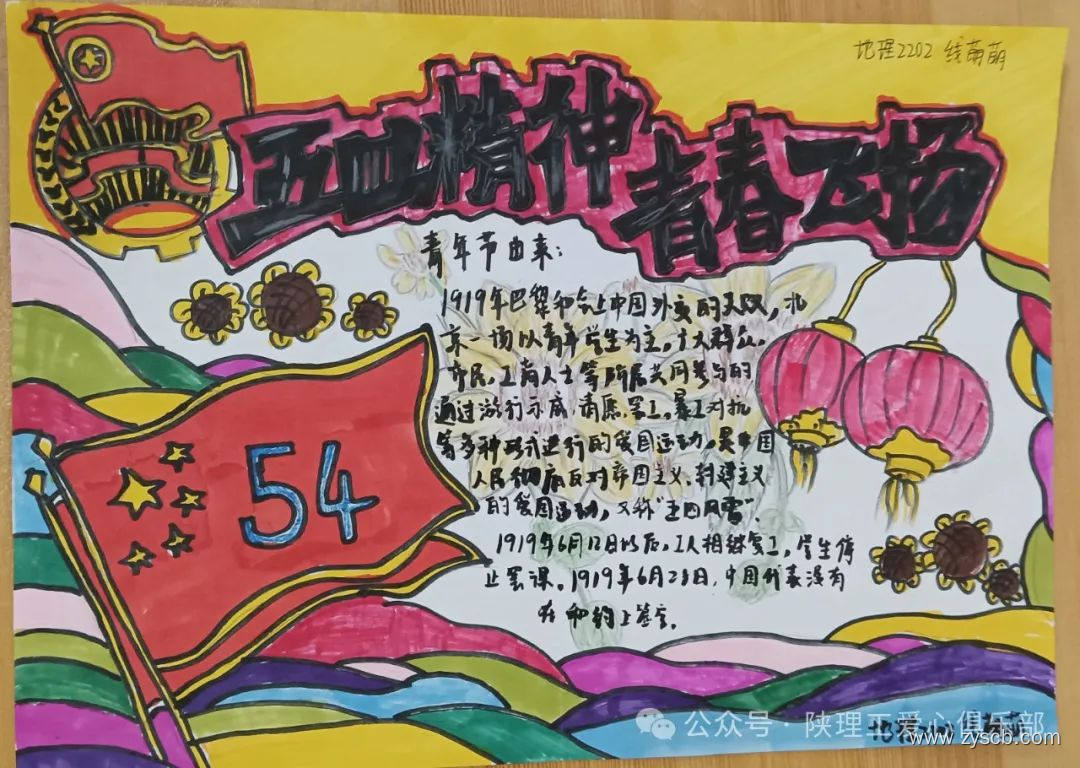 地理2202 线萌萌
五四精神 青春飞扬
青年节由来:
1919年巴黎和会上中国外交的失败,北
京一场以青年学生为主,广大群众,
市民,工商人士等阶层共同参与的
通过游行示威,请愿,罢工,暴工对抗
等多种形式进行的爱国运动,是中国
人民彻底反对帝国主义,封建主义
的爱国运动,又称"五四风雷".
1919年6月12日以后,工人相继复工,学生停
止罢课.1919年6月28日,中国代表没有
在和约上签字.
54
公众号·陕理工爱心俱乐部
www.zyscb.com